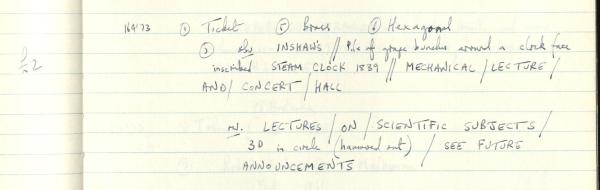 164'73 ① Ticket ⑤ Brass ⑥ Hexagonal
② obv. INSHAW'S // Pile of grape bunches around a clock face
inscribed STEAM CLOCK 1839 // MECHANICAL / LECTURE /
AND / CONCERT / HALL
rev. LECTURES / ON / SCIENTIFIC SUBJECTS /
3D in circle (hammered out) / SEE FUTURE
ANNOUNCEMENTS